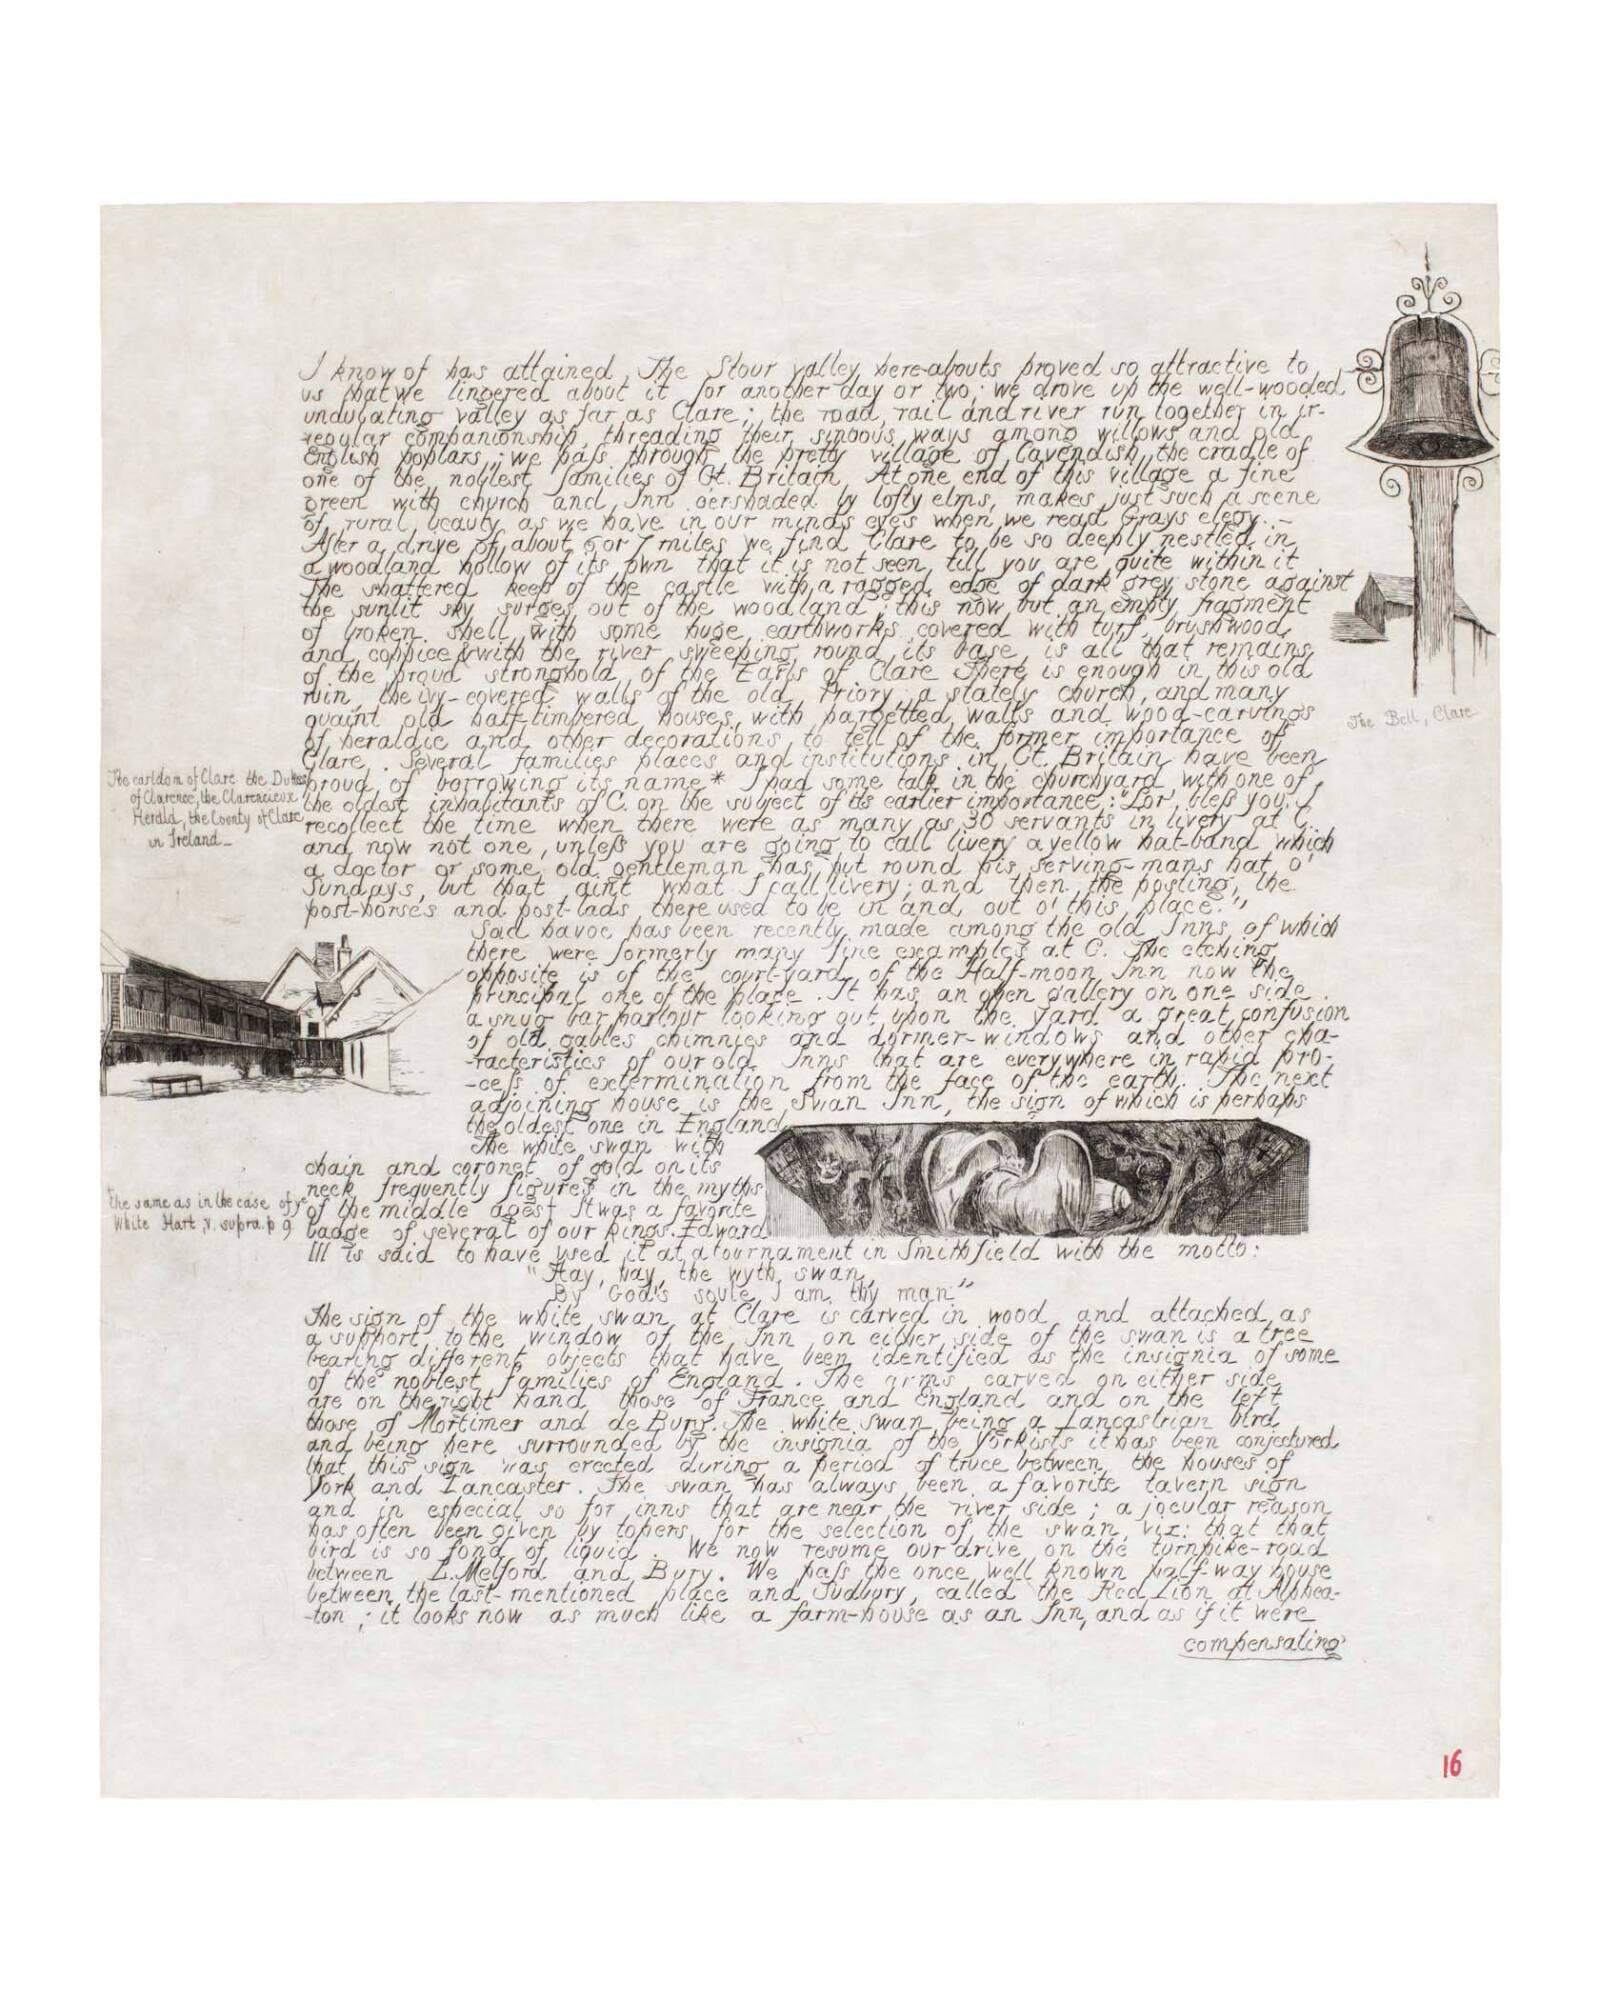 I know of has attained. The Stour valley here-abouts proved so attractive to
us that we lingered about it for another day or two; we drove up the well-wooded
undulating valley as far as Clare; the road, rail and river run together in ir-
-regular companionship, threading their sinuous ways among willows and old
English poplars; we paſs through the pretty village of Cavendish, the cradle of
one of the noblest families of Gt. Britain. At one end of this village a fine
green with church and Inn oershaded by lofty elms, makes just such a scene
of rural beauty as we have in our minds eyes when we read Grays elegy.-
After a drive of about 6 or 7 miles we find Clare to be so deeply nestled in
a woodland hollow of its own that it is not seen till you are quite within it
The shattered keep of the castle with a ragged edge of dark grey stone against
the sunlit sky surges out of the woodland; this now but an empty fragment
of broken shell with some huge earthworks covered with turf, brushwood,
and coppice & with the river sweeping round its base is all that remains
of the proud stronghold of the Earls of Clare There is enough in this old
ruin, the ivy-covered walls of the old Priory, a stately church, and many
quaint old half-timbered houses, with pargetted walls and wood-carvings
of heraldic and other decorations, to tell of the former importance of
Clare. Several families places and institutions in Gt. Britain have been
proud of borrowing its name* I had some talk in the churchyard with one of
the oldest inhabitants of C. on the subject of its earlier importance: "Lor' bleſs you, I
recollect the time when there were as many as 30 servants in livery at C.
and now not one, unleſs you are going to call livery a yellow hat-band which
a doctor or some old gentleman has put round his serving-mans hat o'
Sundays, but that aint what I call livery; and then the posting, the
post-horses and post-lads there used to be in and out o' this place."
The earldom of Clare the Dukes
of Clarence, the Clarencieux
Herald, the County of Clare
in Ireland_
The Bell, Clare
Sad havoc has been recently made among the old Inns, of which
there were formerly many fine examples at C. The etching
opposite is of the court-yard of the Half-moon Inn now the
principal one of the place. It has an open gallery on one side
a snug bar parlour looking out upon the yard a great confusion
of old gables chimnies and dormer-windows and other cha-
-racteristics of our old Inns that are everywhere in rapid pro-
-ceſs of extermination from the face of the earth. The next
adjoining house is the Swan Inn, the sign of which is perhaps
the oldest one in England.
The white swan with
chain and coronet of gold on its
neck frequently figures in the myths
of the middle ages† It was a favorite
badge of several of our kings. Edward
III is said to have used it at a tournament in Smithfield with the motto:
"Hay, hay, the wyth swan,
By God's soule I am thy man"
†the same as in the case of ye
White Hart, v. supra. p 9
The sign of the white swan at Clare is carved in wood and attached as
a support to the window of the Inn on either side of the swan is a tree
bearing different objects that have been identified as the insignia of some
of the noblest families of England. The arms carved on either side
are on the right hand those of France and England and on the left
those of Mortimer and de Burg. The white swan being a Lancastrian bird
and being here surrounded by the insignia of the Yorkists it has been conjectured
that this sign was erected during a period of truce between the houses of
York and Lancaster. The swan has always been a favorite tavern sign
and in especial so for inns that are near the river side; a jocular reason
has often been given by topers for the selection of the swan, viz: that that
bird is so fond of liquid. We now resume our drive on the turnpike-road
between L. Melford and Bury. We paſs the once well known half-way house
between the last-mentioned place and Sudbury, called the Red Lion at Alphea-
-ton; it looks now as much like a farm-house as an Inn, and as if it were
compensating
16